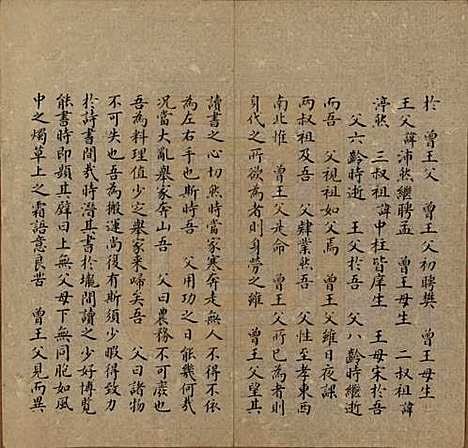 於　曾王父　曾王父初聘樊　曾王母生
王父諱沛然繼聘孟　曾王母生　二叔祖諱
淳然　三叔祖諱中柱皆庠生　王母宋於吾
父六齡時逝　王父於吾　父八齡時繼逝
而吾　父視祖如父焉　曾王父維日夜課
兩叔祖及吾　父肄業然吾　父性至孝東西
南北惟　曾王父是命　曾王父所已為者則
身代之所欲為者則身勞之雖　曾王父望其
讀書之心切然時當家寒奔走無人不得不依
為左右手也斯時吾　父用功之日能幾何哉
況當大亂舉家奔山吾　父曰農務不可廢也
吾為料理值少定舉家來歸矣吾　父曰諸物
不可失也吾為搬運尚後有斯須少暇得致力
於詩書間哉時潛其書於壠間讀之少好博覽
能書時即題其壁曰上無父母下無同胞如風
中之燭草上之霜語意良苦　曾王父見而異